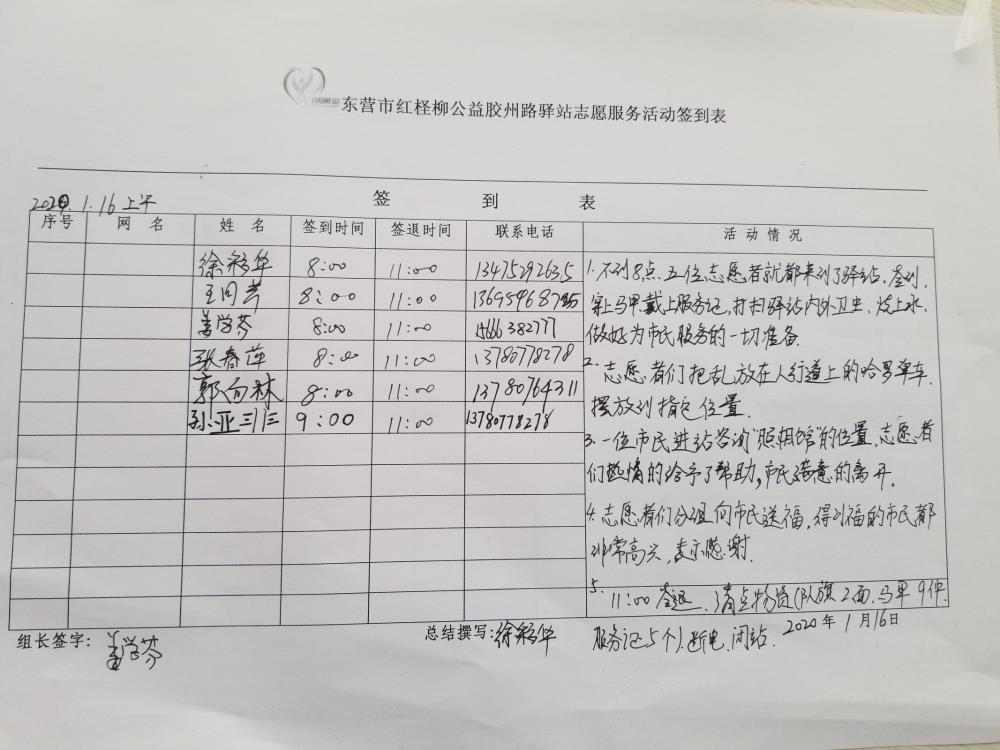 东营市红柽柳公益胶州路驿站志愿服务活动签到表
签 到 表
2020.1.16上午
序号 网 名 姓 名 签到时间 签退时间 联系电话 活 动 情 况
徐彩华 8:00 11:00 13475292635
8:00 11:00
姜学芬 8:00 11:00 15666382777
张春萍 8:00 11:00 13780778278
郭向林 8:00 11:00 13780764311
孙亚 9:00 11:00 13780778278
1. 不到8点.五位志愿者就都来到了驿站.签到.
穿上马甲.戴上服务证.打扫驿站内外卫生.烧上水.
做好为市民服务的一切准备.
2. 志愿者们把乱放在人行道上的哈罗单车.
摆放到指定位置.
3. 一位市民进站咨询“照相馆”的位置.志愿者
们热情的给予了帮助,市民满意的离开.
4. 志愿者们分组向市民送福,得到福的市民都
非常高兴,表示感谢.
5. 11:00签退.清点物资(队旗2面.马甲9件.
服务证5个).断电.闭站.
组长签字: 姜学芬 总结撰写: 徐彩华 2020年1月16日